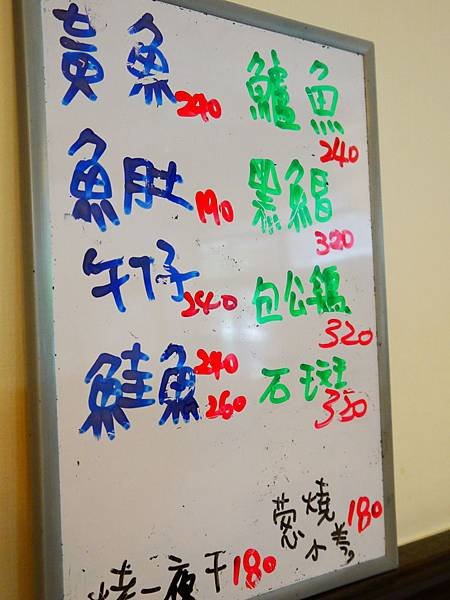 黃魚 240
魚肚 190
午仔 240
鮭魚 240 260
鱸魚 240
黑鯧 320
包公鷄 320
石斑 350
蔥燒 180
烤一夜干 180